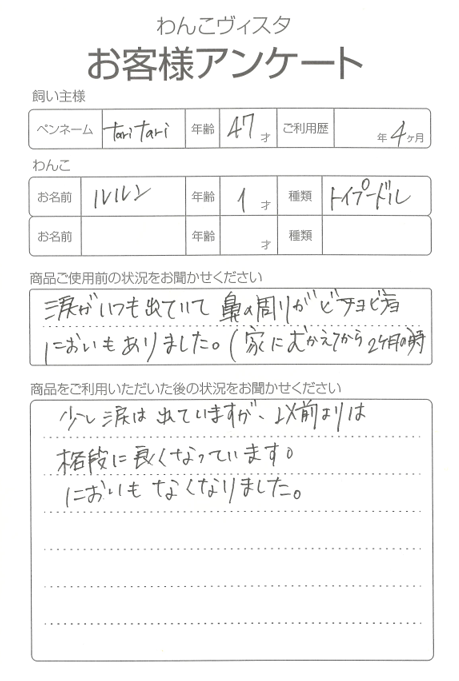 わんこヴィスタ
お客様アンケート
飼い主様
ペンネーム taritari 年齢 47才 ご利用歴 年4ヶ月
わんこ
お名前 ルルン 年齢 1才 種類 トイプードル
お名前 年齢 才 種類
商品ご使用前の状況をお聞かせください
涙がいつも出ていて鼻の周りがビチョビチョ
においもありました。(家にむかえてから2ヶ月の時
商品をご利用いただいた後の状況をお聞かせください
少し涙は出ていますが、以前よりは
格段に良くなっています。
においもなくなりました。